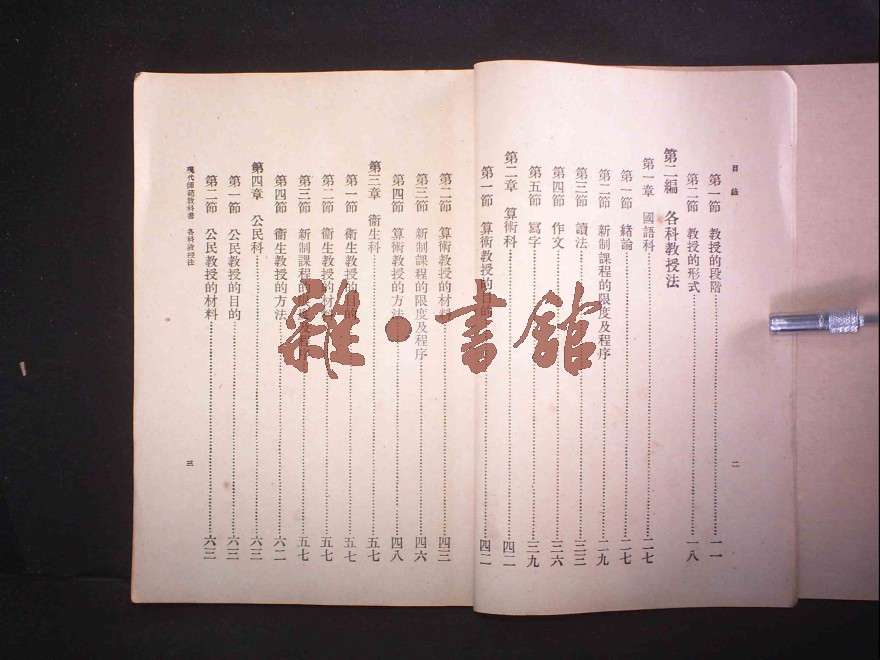 目錄
第一節 教授的段階 一一
第二節 教授的形式 一八
第二編 各科教授法
第一章 國語科 二七
第一節 緒論 二七
第二節 新制課程的限度及程序 二九
第三節 讀法 三三
第四節 作文 三六
第五節 寫字 三九
第二章 算術科 四二
第一節 算術教授的目的 四二
二
第二節 算術教授的材料 四三
第三節 新制課程的限度及程序 四六
第四節 算術教授的方法 四八
第三章 衞生科 五七
第一節 衞生教授的目的 五七
第二節 衞生教授的材料 五七
第三節 新制課程的限度及程序 五七
第四節 衞生教授的方法 六二
第四章 公民科 六三
第一節 公民教授的目的 六三
第二節 公民教授的材料 六三
現代師範教科書 各科教授法
三
雜·書館